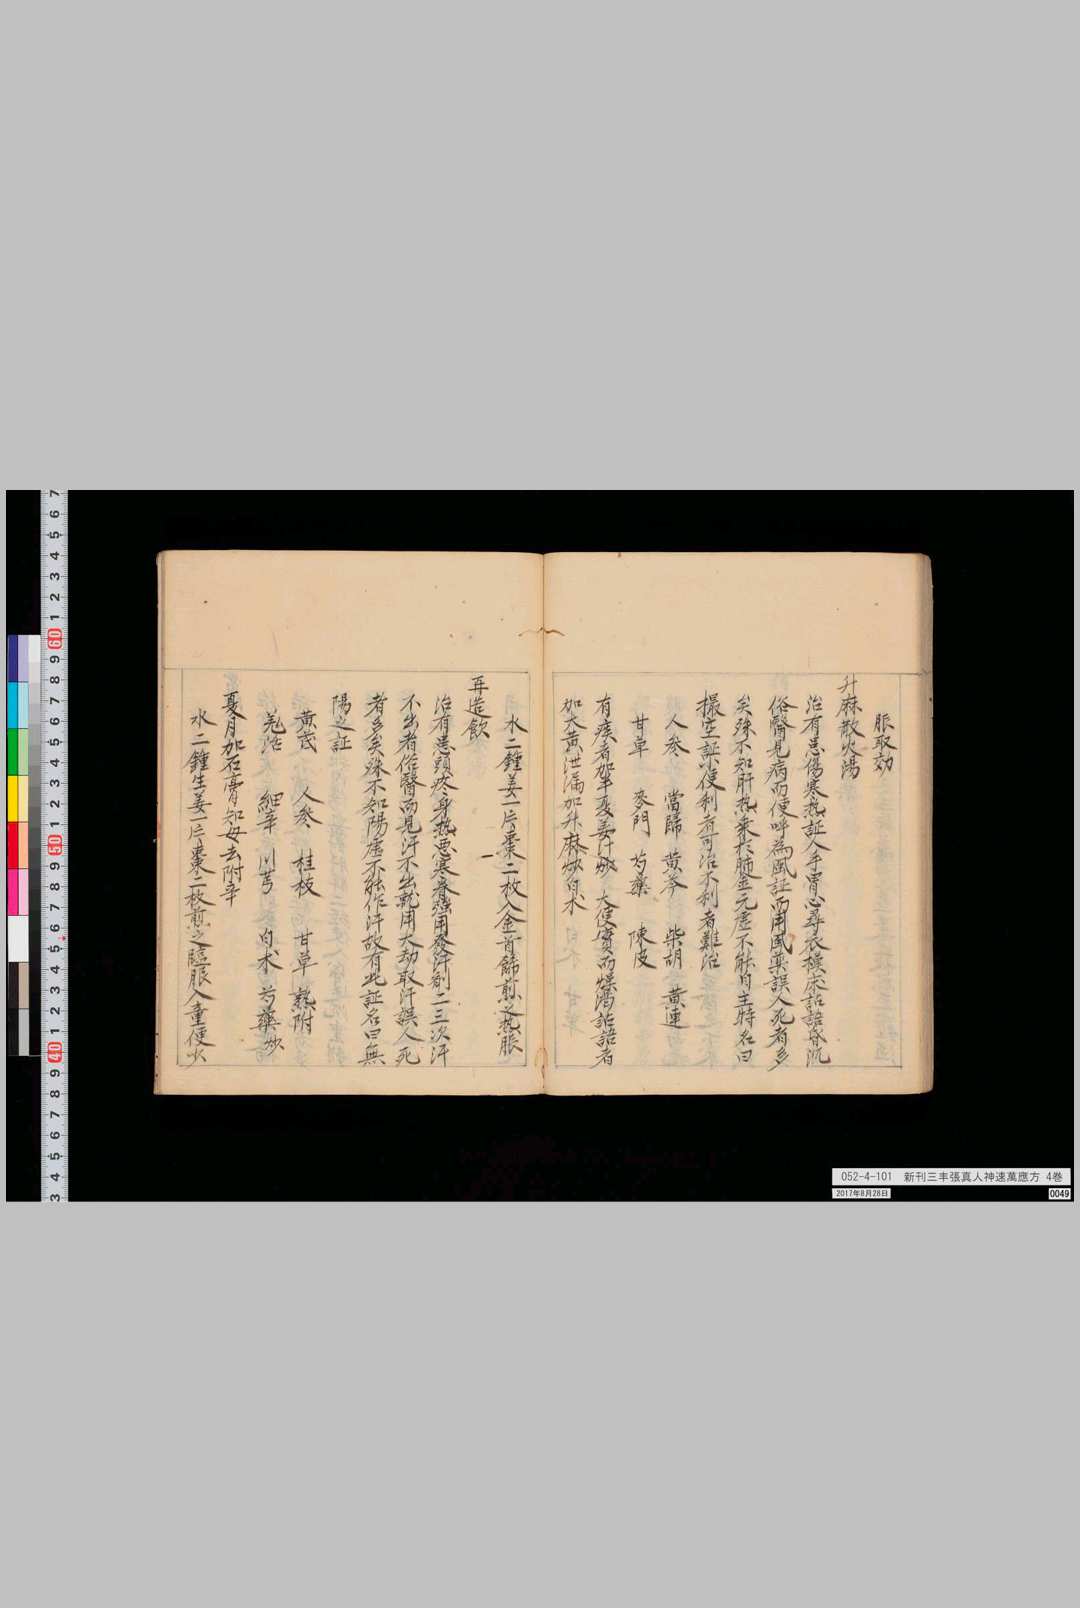 脹取効
升麻散火湯
治有患傷寒热証人手冒心尋衣摸床詀語昏沉
俗醫見病而便呼為風証而用風薬誤人死者多
矣殊不知肝热乗於肺金元虚不能自主持名曰
撮空証小便利者可治不利者難治
人参 當歸 黄芩 柴胡 黄連
甘草 麥門 芍藥 陳皮
有痰者加半夏姜汁炒 大便實而燥渇詀語者
加大黄泄漏加升麻炒白朮
水二鍾姜一片棗二枚入金首餙煎之热脹
再造飲
治有患頭疼身热悪寒脊强用發汗剤二三次汗
不出者俗醫而見汗不出就用大劫取汗誤人死
者多矣殊不知陽虚不能作汗故有此証名曰無
陽之証
黄茂 人参 桂枝 甘草 熟附
羗活 細辛 川芎 白术 芍藥炒
夏月加石膏知母去附辛
水二鍾生姜一片棗二枚煎之臨脹入童便少
052-4-101 新刊三丰張真人神速萬應方 4巻
2017年8月28日
0049